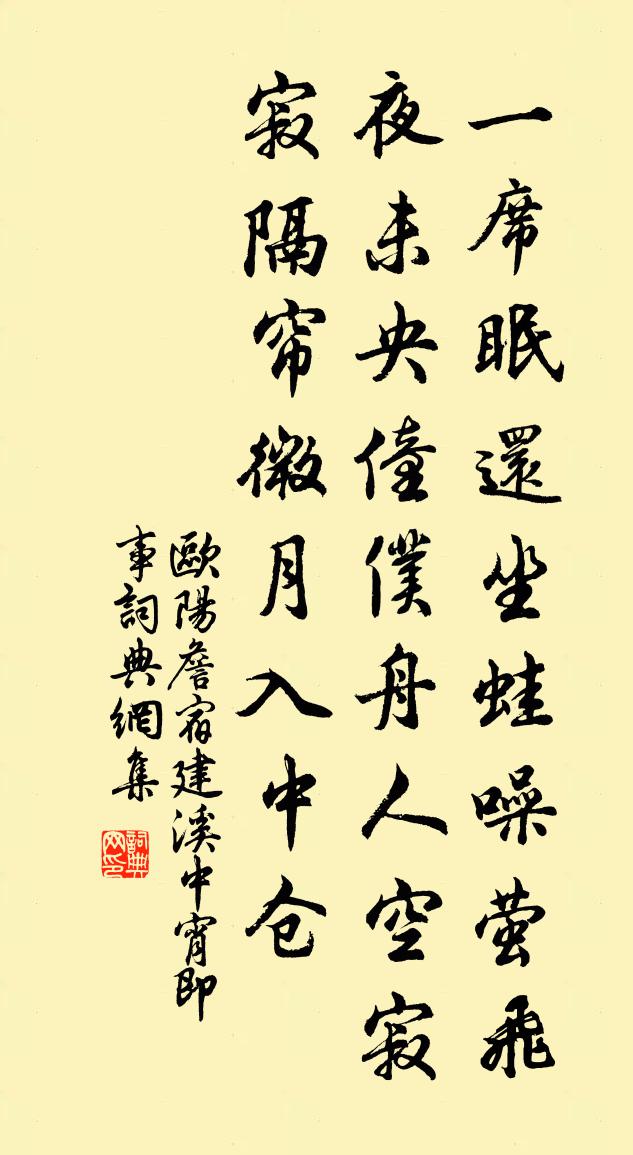 一席眠還坐蛙噪萤飛
夜未央僮僕舟人空寂
寂隔帘微月入中仓
歐陽詹宿建溪中宵即
事詞典網集
詞典网印